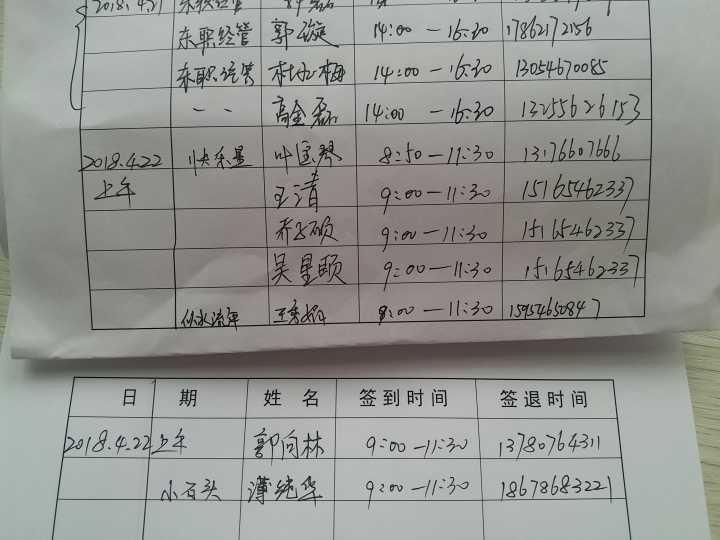 2018.4.21
东职经管 郭璇 14:00—16:30 17862172156
东职经管 杜小梅 14:00—16:30 13054670085
、、 高金磊 14:00 —16:30 13255626153
2018.4.22 快乐星 叶宝琴 8:50—11:30 13176607666
上午 王清 9:00—11:30 15165462337
乔石硕 9:00—11:30 15165462337
吴星颐 9:00—11:30 15165462337
似水流年 9:00—11:30 15954650847
日 期 姓 名 签到时间 签退时间
2018.4.22 上午 郭向林 9:00-11:30 13780764311
小石头 薄纯华 9:00-11:30 18678683221